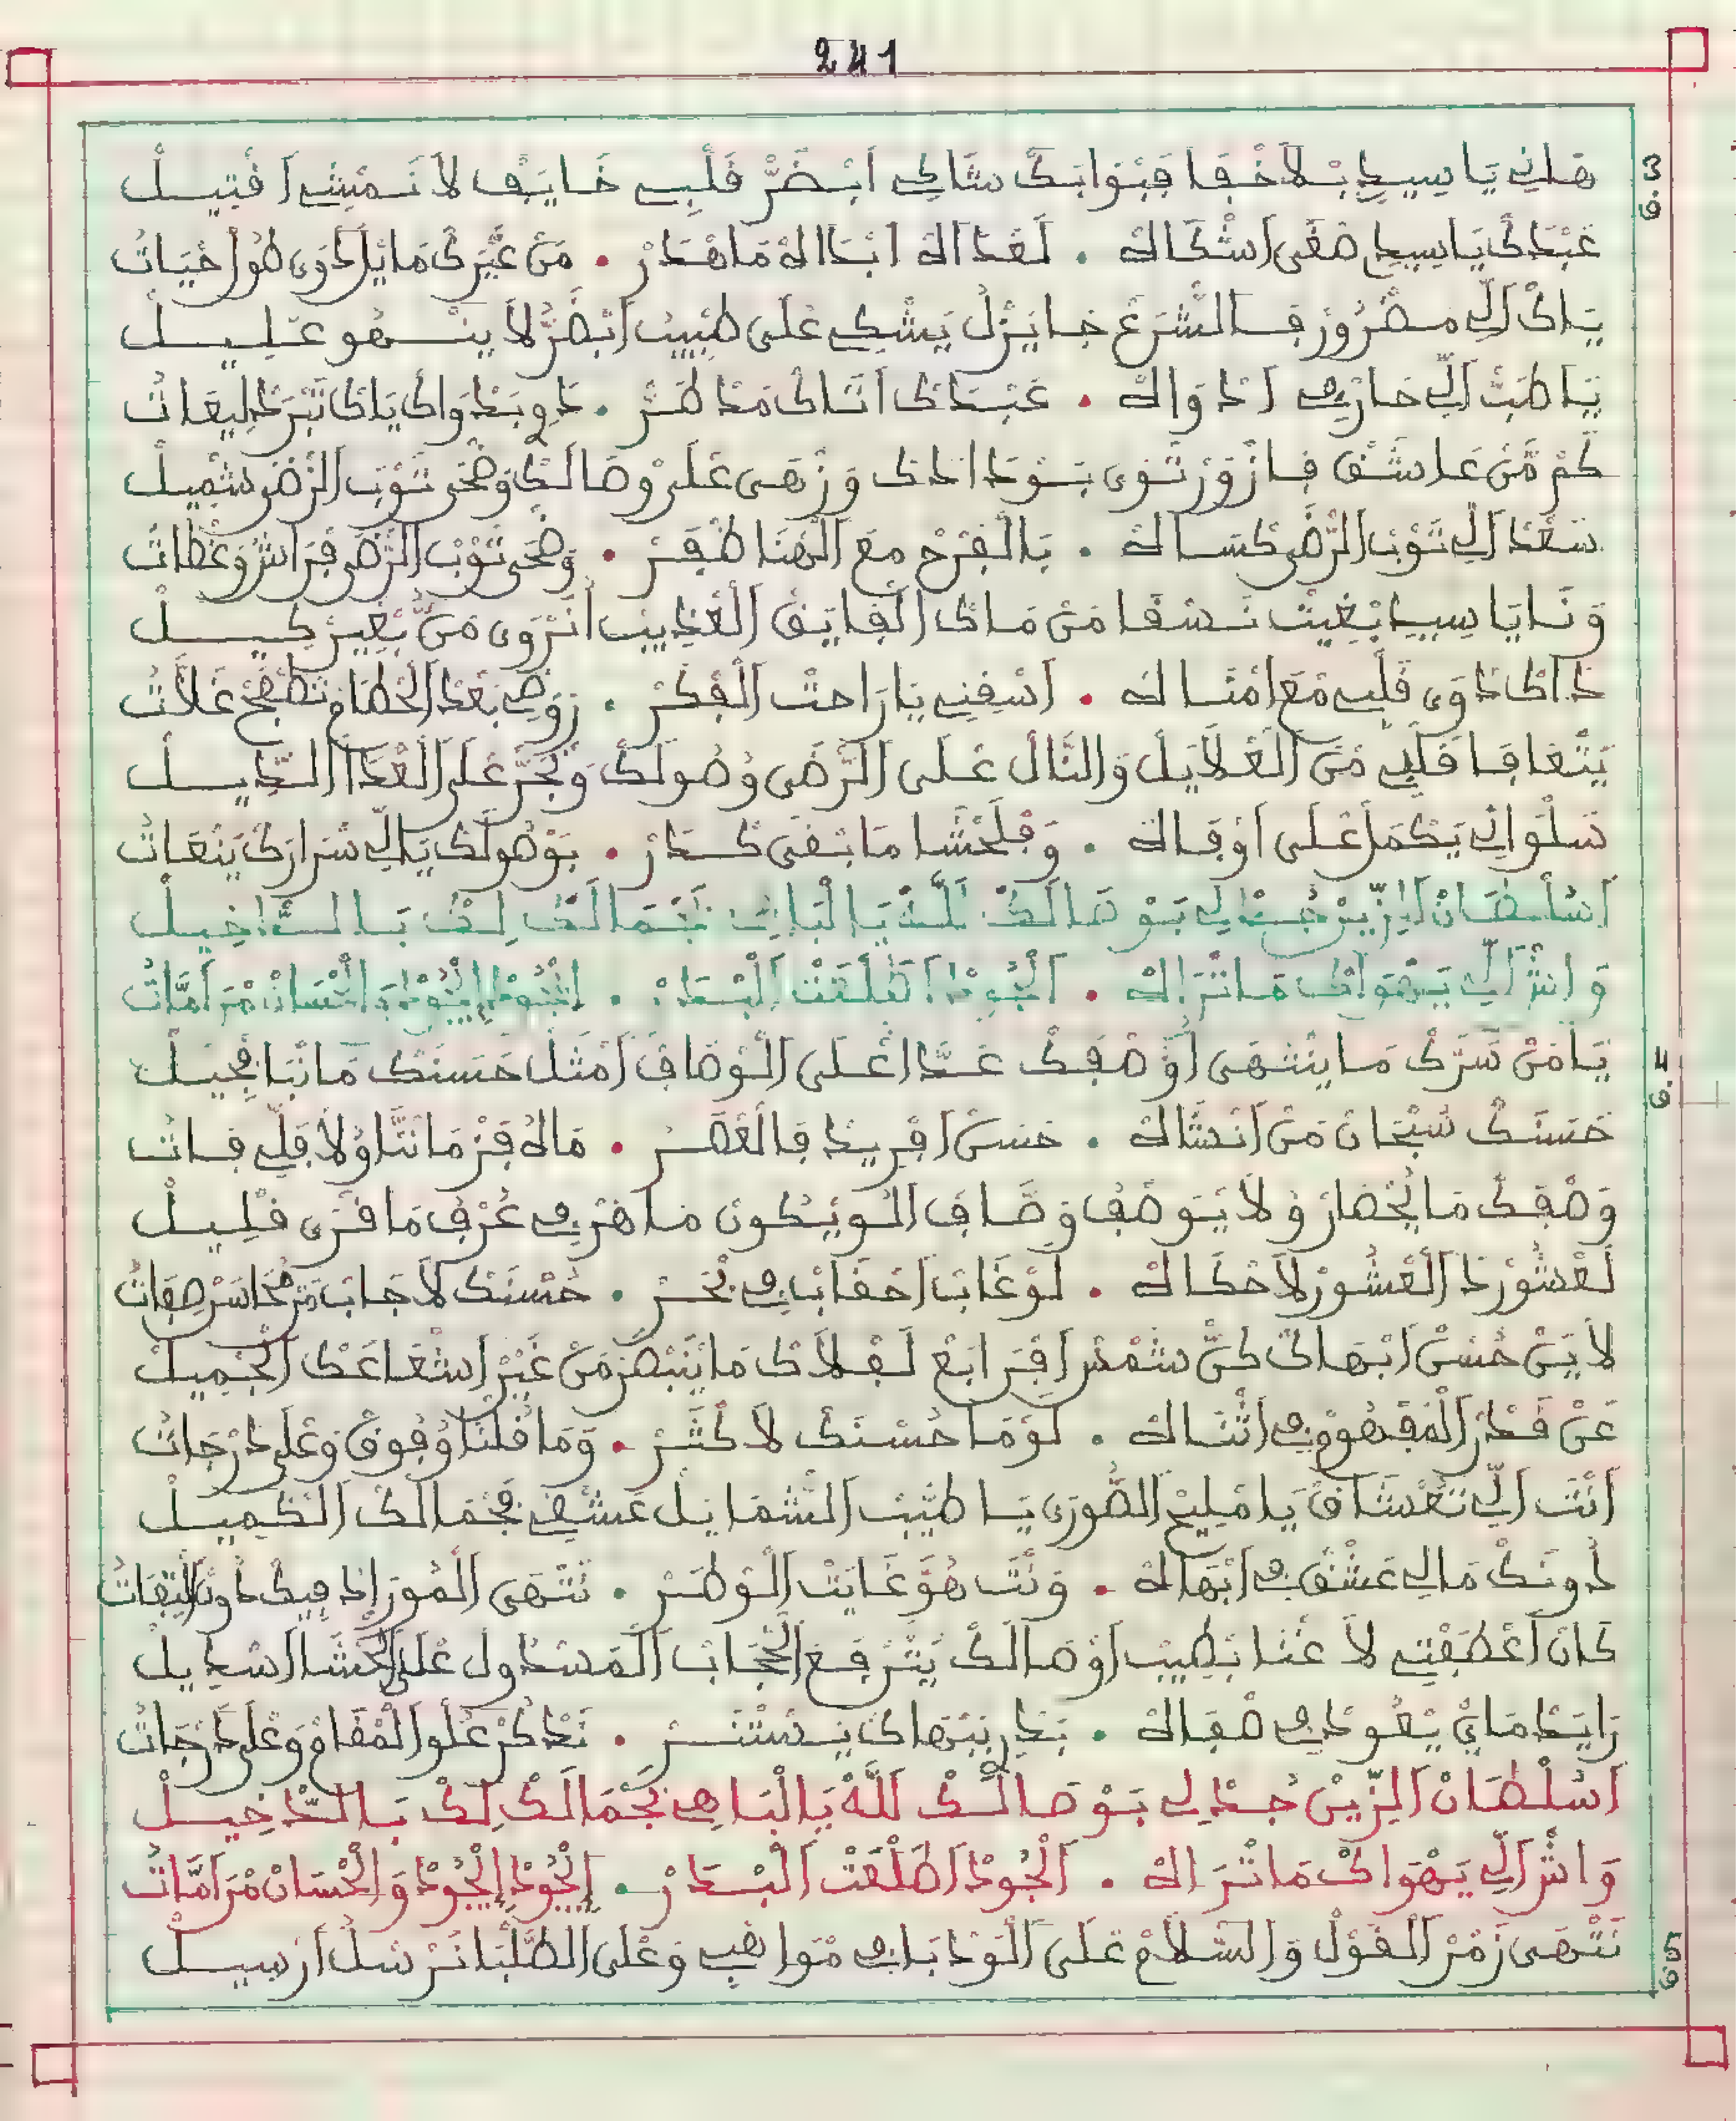 241
3
ف
هَانِي يَا سِيدِي بْلَا خْفَا فَبْوَابَكْ شَاكِي ابْضَرّْ قَلْبِي خَايَفْ لَا نَمْشِي اقْتِيلْ
عَبْدَكْ يَا سِيدِي صْغَى اشْكَاهْ . لَعْدَاهْ ابْدَاهْ مَا هْدَرْ . مَنْ غَيْرَكْ مَا يْلُ دْوَى طُولْ احْيَاتُ
يَاكْ الِّي مَضْرُورْ فَالشَّرَعْ جَايَزْلُ يَشْكِي عْلَى طْبِيبُ ابْضَرُّ لَا يَنْهُو عْلِيلْ
يَا طَبّْ الِّي حَازْ فِي ادْوَاهْ . عَبْدَكْ اتَاكْ مَدْ طْهَرْ . دَوِي بَدْوَاكْ يَاكْ تَبْرَدْ لِيعَاتُ
كَمْ مَنْ عَاشَقْ فَازْ وَرْتْوَى بَوْدَادَكْ وَزْهَى عْلَى وْصَالَكْ وَضْحَى ثَوْبْ الرْضَى شْمِيلْ
سَعْدْ الِّي ثَوْبْ الرّْضَى كْسَاهْ . بَالْفَرْحْ مَعَ الْهْنَا ظْفَرْ . وَضْحَى ثَوْبْ الرّْضَى فْرَاشُ وَغْطَاتُ
وَنَايَا سِيدِي بْغِيتْ نَسْقَا مَنْ مَاكْ الْفَايَقْ الْعْذِيبْ انَرْوَى مَنُّ بْغِيرْ كِيلْ
دَاكْ دْوَى قَلْبِي مْعَ امْنَاهْ . اسْقِينِي يَا رَاحَتْ الْفْكَرْ . رَوْضِي بَعْدْ الْحْطَامْ تَطْفَحْ غَلَّاتُ
يَتْعَافَا قَلْبِي مَنْ الْعْلَايَلْ وَالنَّالْ عْلَى الرّْضَى وُصُولَكْ وَنْجَرّْ عْلَى الْعْدَا الدِّيلْ
سَلْوَانِي يَكْمَلْ عْلَى اوْفَاهْ . وَفْلَحْشَا مَا بْقَى كْدَرْ . بَوْصُولَكْ يَالِّي سْرَارَكْ يَنْعَاتُ
اسُلْطَانْ الزِّينْ جُدْ لِي بَوْصَالَكْ لَلَّهْ يَا الْبَاهِي بَجْمَالَكْ لِكْ بَالدّْخِيلْ
وَاشْ الِّي يَهْوَاكْ مَا تْرَاهْ . الْجُودْ اطَلْعَتْ الْبْدَرْ . الْجُودْ الْجُودْ وَالْحْسَانْ مْرَامَاتُ
4
ف
يَا مَنْ سَرَّكْ مَا يْنْتْهَى اوْصْفَكْ عَدَّا عْلَى الْوْصَافْ امْثَلْ حَسْنَكْ مَا نْبَا فْجِيلْ
حَسْنَكْ سُبْحَانْ مَنْ انْشَاهْ . حَسْنْ افْرِيدْ فَالْعْصَرْ . مَالُهْ فَزْمَانْتَا وُلَا فَلِّي فَاتْ
وَصْفَكْ مَا يُحْصَارْ وُلَا يَوْصَفْ وَصَّافْ الْوْ يْكُونْ مَاهَرْ فِي عُرْفْ مَا قْرَى قْلِيلْ
لَعْشُورْ دْ الْعْشُورْ لَا حْكَاهْ . لَوْ غَابْ احْقَابْ فِي بْحَرْ . حُسْنَكْ لَا جَابْ مَنْ مْحَاسَنْ صِفَاتُ
لَايَنْ حُسْنْ ابْهَاكْ كَنّْ شَمْشْ افْرَابَعْ لَفْلَاكْ مَا يْنْبْصَرْ مَنْ غَيْرْ اشْعَاعَكْ الْجْمِيلْ
عَنْ قَدْرْ الْمَفْهُومْ فِي اثْنَاهْ . لَوْمَا حُسْنَكْ لَا كْثَرْ . وَمَا قُلْنَا وُفُوقْ وَعْلَى دَرْجَاتُ
انْتَ الِّي تَعْشَاقْ يَا مْلِيحْ الصُّورَى يَا طَيَّبْ الشّْمَايَلْ عَشْقِي فَجْمَالَكْ الْكْمِيلْ
دُونَكْ مَالِي عَشْقْ فِي ابْهَاهْ . وَنْتَ هُوَّ غَايَتْ الْوْطَرْ . نَتْهَى الْمُورَادْ فِيكْ دُونْ الْتِفَاتُ
كَانْ اعْطَفْتِي لَا غْنَا نَطِيبْ اوْصَالَكْ يَتْرْفَعْ الْحْجَابْ الْمَسْدُولْ عْلَى الْحْشَا اسْدِيلْ
رَايَدْ مَايْ يْعُودْ فِي صْفَاهْ . بَدْرْ بْبْهَاكْ يَسْتْنَرْ . نَدْكُرْ عْلُو الْمْقَامْ وَعْلَى دَرْجَاتُ
اسُلْطَانْ الزِّينْ جُدْ لِي بَوْصَالَكْ لَلَّهْ يَا الْبَاهِي بَجْمَالَكْ لِكْ بَالدّْخِيلْ
وَاشْ الِّي يَهْوَاكْ مَا تْرَاهْ . الْجُودْ اطَلْعَتْ الْبْدَرْ . الْجُودْ الْجُودْ وَالْحْسَانْ مْرَامَاتُ
5
ف
نَتْهَى رَمْزْ الْقَوْلْ وَالسّْلَامْ عْلَى الْوَدْبَا فِي مْوَاهْبِي وَعْلَى الطَّلْبَا نَرْسَلْ ارْسِيلْ